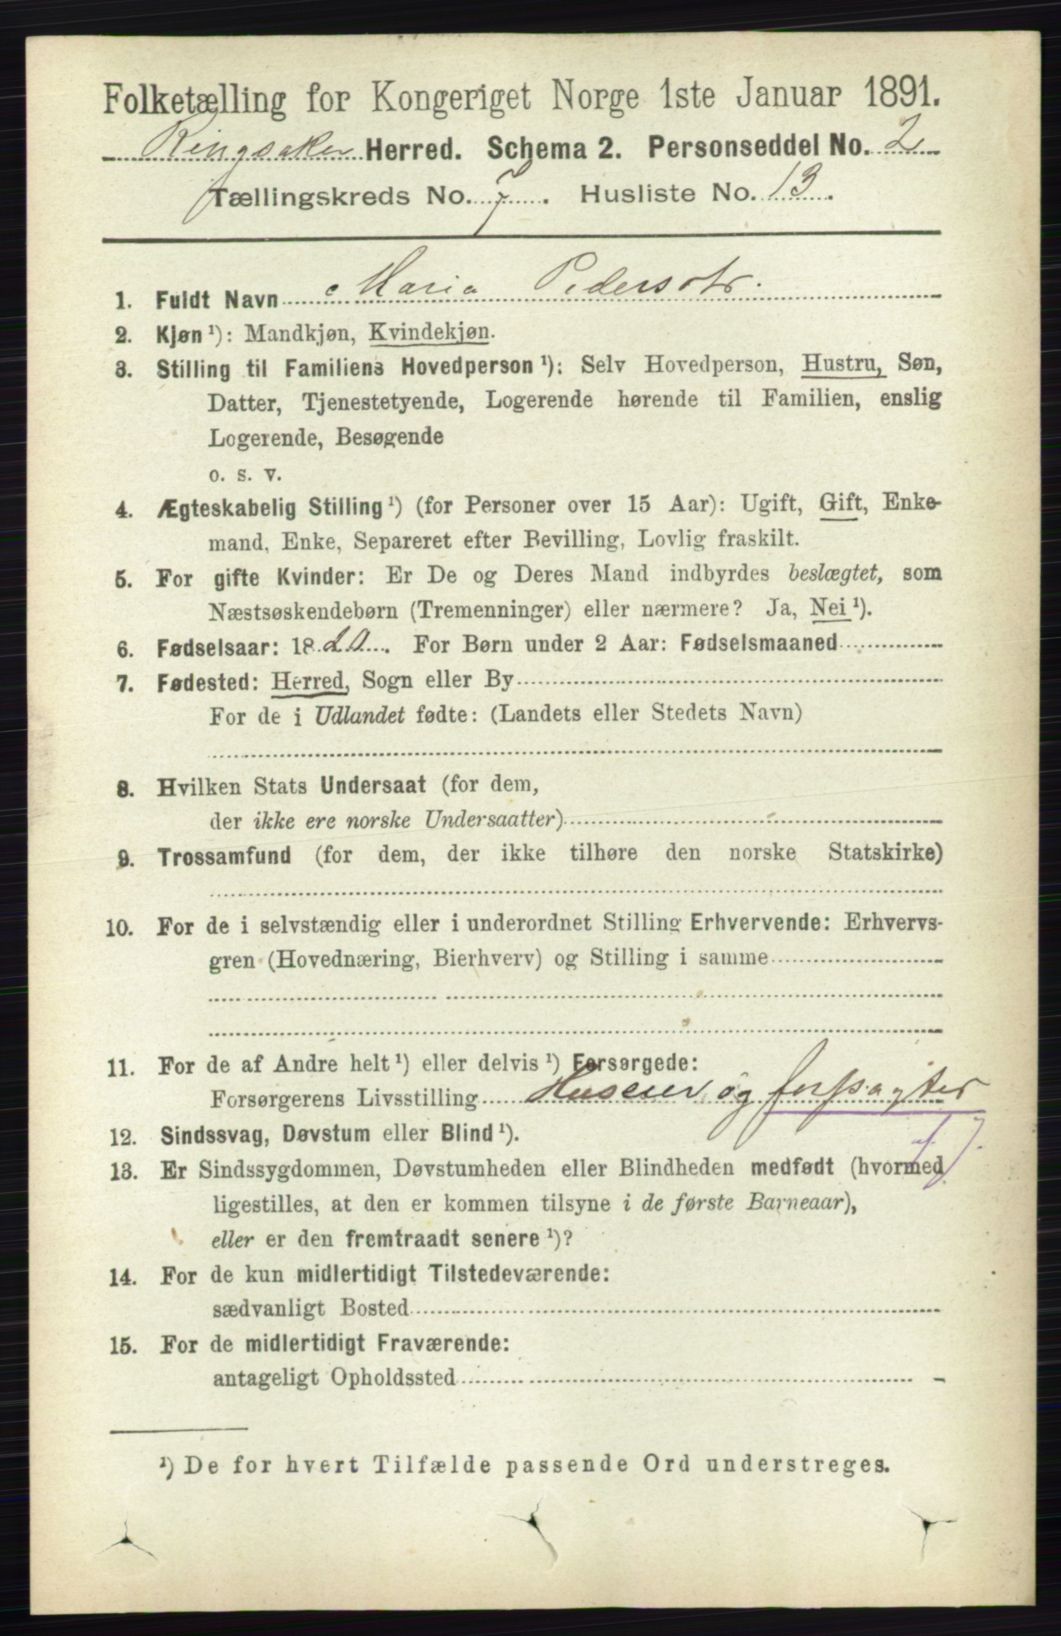 Folketælling for Kongeriget Norge 1ste Januar 1891.
Ringsaker Herred. Schema 2. Personseddel No. 2
Tællingskreds No. 7. Husliste No. 13.
1. Fuldt Navn Maria Pedersdtr.
2. Kjøn ¹): Mandkjøn, Kvindekjøn.
3. Stilling til Familiens Hovedperson ¹): Selv Hovedperson, Hustru, Søn,
Datter, Tjenestetyende, Logerende hørende til Familien, enslig
Logerende, Besøgende
o. s. v.
4. Ægteskabelig Stilling ¹) (for Personer over 15 Aar): Ugift, Gift, Enke-
mand, Enke, Separeret efter Bevilling, Lovlig fraskilt.
5. For gifte Kvinder: Er De og Deres Mand indbyrdes beslægtet, som
Næstsøskendebørn (Tremenninger) eller nærmere? Ja, Nei ¹).
6. Fødselsaar: 1820. For Børn under 2 Aar: Fødselsmaaned
7. Fødested: Herred, Sogn eller By
For de i Udlandet fødte: (Landets eller Stedets Navn)
8. Hvilken Stats Undersaat (for dem,
der ikke ere norske Undersaatter)
9. Trossamfund (for dem, der ikke tilhøre den norske Statskirke)
10. For de i selvstændig eller i underordnet Stilling Erhvervende: Erhvervs-
gren (Hovednæring, Bierhverv) og Stilling i samme
11. For de af Andre helt ¹) eller delvis ¹) Forsørgede:
Forsørgerens Livsstilling Huseier og forpagter
12. Sindssvag, Døvstum eller Blind ¹).
13. Er Sindssygdommen, Døvstumheden eller Blindheden medfødt (hvormed
ligestilles, at den er kommen tilsyne i de første Barneaar),
eller er den fremtraadt senere ¹)?
14. For de kun midlertidigt Tilstedeværende:
sædvanligt Bosted
15. For de midlertidigt Fraværende:
antageligt Opholdssted
¹) De for hvert Tilfælde passende Ord understreges.